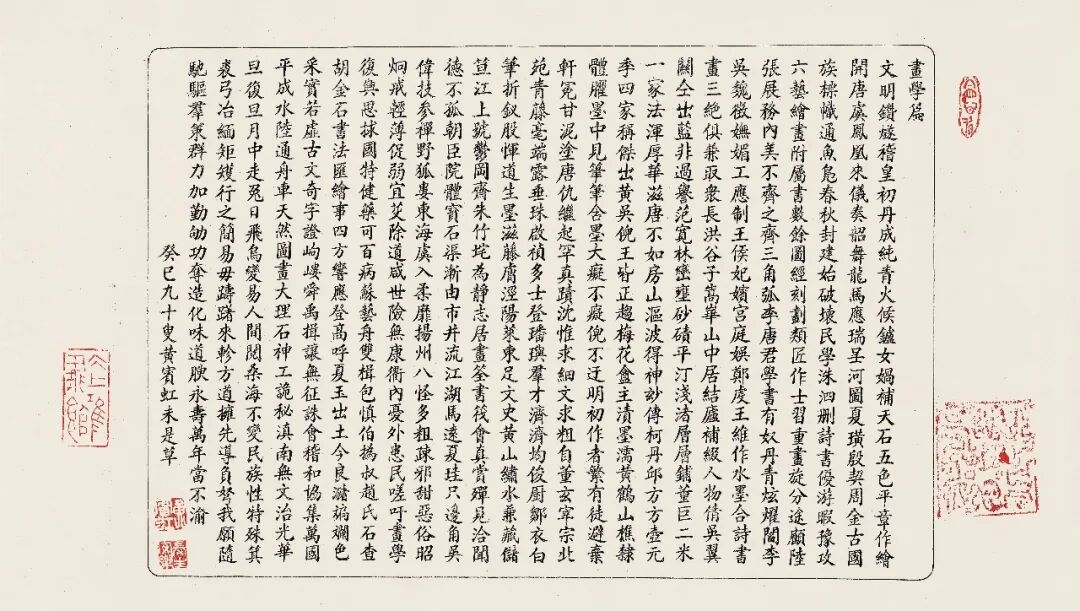 畫學篇
文明鑽燧稽皇初丹成純青火候鑪女媧補天石五色平章作繪
開唐虞鳳凰來儀奏韶舞龍馬應瑞呈河圖夏璜殷契周金古國
族標幟通魚鳧春秋封建始破壞民學洙泗刪詩書優游暇豫攻
六藝繪畫附屬書數餘圖經刻劃類匠作士習重畫旋分途顧陸
張展務內美不齊之齊三角弧李唐君學書有奴丹青炫耀閻李
吳魏徵嫵媚工應制王侯妃嬪宮庭娛鄭虔王維作水墨合詩書
畫三絕俱兼取眾長洪谷子嵩華山中居結廬補綴人物倩吳翼
關仝出藍非過譽范寬林巒壅砂磧平汀淺渚層層鋪董巨二米
一家法渾厚華滋唐不如房山漚波得神妙傳柯丹邱方方壺元
季四家稱傑出黃吳倪王皆正趨梅花盦主漬墨濡黃鶴山樵隸
體臞墨中見筆筆含墨大癡不癡倪不迂明初作者繁有徒避棄
軒冕甘泥塗唐仇繼起罕真蹟沈惟求細文求粗自董玄宰宗北
苑青藤毫端露垂珠啟禎多士登璠璵羣才濟濟均俊廚鄒衣白
筆折釵股惲道生墨滋藤膚涇陽萊東足文史黃山繡水兼藏儲
荁江上號鬱岡齋朱竹垞為靜志居畫筌書筏會真賞殫見洽聞
德不孤朝臣院體寶石渠漸由市井流江湖馬遠夏珪只邊角吳
偉技參禪野狐婁東海虞入柔靡揚州八怪多粗疎邪甜惡俗昭
炯戒輕薄促弱宜芟除道咸世險無康衢內憂外患民嗟吁畫學
復興思捄國特健藥可百病蘇藝舟雙楫包慎伯撝叔趙氏石查
胡金石書法匯繪事四方響應登高呼夏玉出土今良渚㻞斕色
采實若虛古文奇字證岣嶁舜禹揖讓無征誅會稽和協集萬國
平成水陸通舟車天然圖畫大理石神工詭秘滇南無文治光華
旦復旦月中走兔日飛烏變易人間閱桑海不變民族性特殊箕
裘弓冶緬矩矱行之簡易毋躊躇來軫方遒擁先導負弩我願隨
馳驅羣策群力加勤劬功奪造化味道腴永壽萬年當不渝
癸巳九十叟黃賓虹未是草